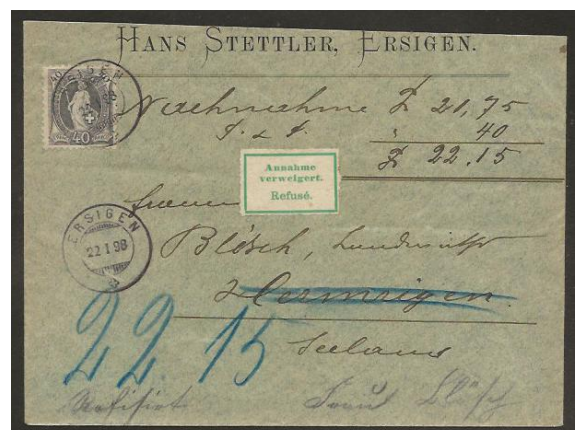 HANS STETTLER, ERSIGEN.
40
40
Nachnahme 21,75
40
22.15
Annahme
verweigert.
Refusé.
ERSIGEN
22 I 98
Blösch,
Hermrigen
Seeland
22.15